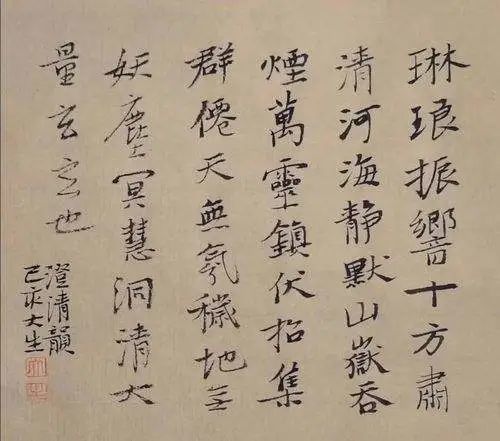 琳琅振響十方肅
清河海静默山嶽吞
煙萬靈鎮伏招集
群僊天無氛穢地无
妖塵冥慧洞清大
量玄玄也
澄清韻
己亥大生